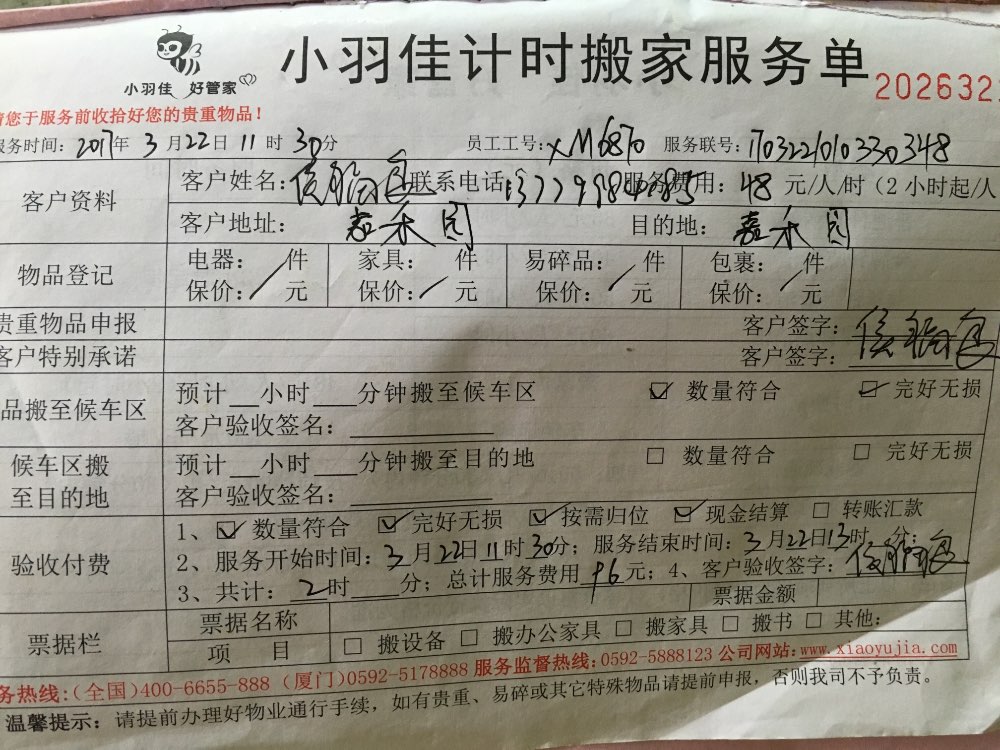 小羽佳 好管家
小羽佳计时搬家服务单
202632
请您于服务前收拾好您的贵重物品！
服务时间：2017年 3 月 22 日 11 时 30分 员工工号：XM6870 服务联号：170322010330348
客户资料
客户姓名： 联系电话： 服务费用：48 元/人/时（2小时起/人
客户地址： 嘉禾园 目的地： 嘉禾园
物品登记
电器： 件 家具： 件 易碎品： 件 包裹： 件
保价： 元 保价： 元 保价： 元 保价： 元
贵重物品申报 客户签字：
客户特别承诺 客户签字：
品搬至候车区
预计__小时___分钟搬至候车区 ☑ 数量符合 ☑ 完好无损
客户验收签名：
候车区搬
至目的地
预计__小时___分钟搬至目的地 □ 数量符合 □ 完好无损
客户验收签名：
验收付费
1、☑ 数量符合 ☑ 完好无损 ☑ 按需归位 ☑ 现金结算 □ 转账汇款
2、服务开始时间：3 月 22 日 11 时 30分；服务结束时间：3 月 22 日 13时 分；
3、共计： 2 时 分；总计服务费用 96 元；4、客户验收签字：
票据栏
票据名称 票据金额
项 目 □ 搬设备 □ 搬办公家具 □ 搬家具 □ 搬书 □ 其他：
务热线：(全国)400-6655-888 (厦门)0592-5178888 服务监督热线：0592-5888123 公司网站：www.xiaoyujia.com
温馨提示：请提前办理好物业通行手续，如有贵重、易碎或其它特殊物品请提前申报，否则我司不予负责。